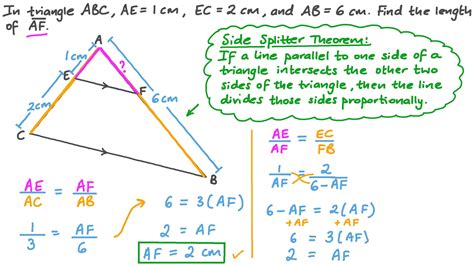 In triangle ABC, AE = 1 cm, EC = 2 cm, and AB = 6 cm. Find the length
of AF.
Side Splitter Theorem:
If a line parallel to one side of a
triangle intersects the other two
sides of the triangle, then the line
divides those sides proportionally.
A
1cm
?
E
F
2cm
6cm
C
B
AE/AC = AF/AB
1/3 = AF/6
6 = 3(AF)
2 = AF
AF = 2 cm
AE/AF = EC/FB
1/AF = 2/6-AF
6-AF = 2(AF)
+AF +AF
6 = 3(AF)
2 = AF